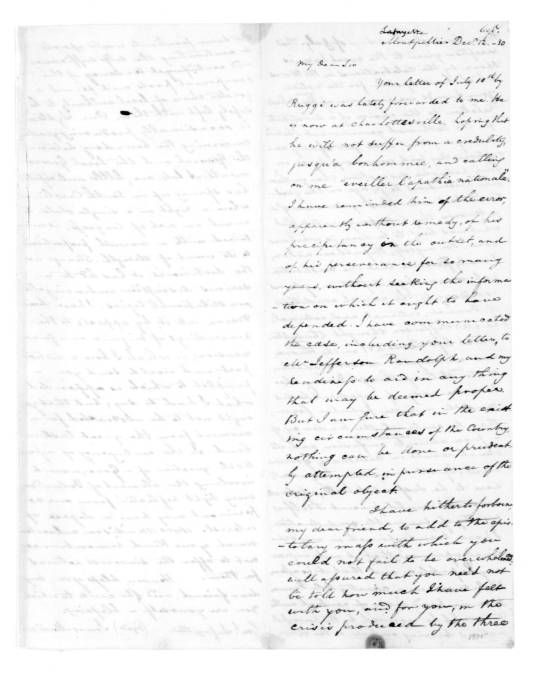 Lafayette
Montpellier Decr 12 - 30
My dear Sir
Your letter of July 10th by
Ruggi was lately forwarded to me. He
is now at Charlottesville hoping that
he will not suffer from a credulity,
jusqu'a bonhommie, and calling
on me "eveiller l'apathie nationale".
I have reminded him of the error,
apparently without remedy, of his
precipitancy in the outset, and
of his perseverance for so many
years, without seeking the informa
-tion on which it ought to have
depended. I have communicated
the case, including your letter, to
Mr Jefferson Randolph, and my
readiness to aid in any thing
that may be deemed proper
But I am sure that in the exist
ing circumstances of the Country
nothing can be done or prudent
ly attempted, in pursuance of the
original object.
I have hitherto forborne,
my dear friend, to add to the epis
-tolary mass with which you
could not fail to be overwhelmed
well assured that you need not
be told how much I have felt
with you, and for you, in the
crisis produced by the three